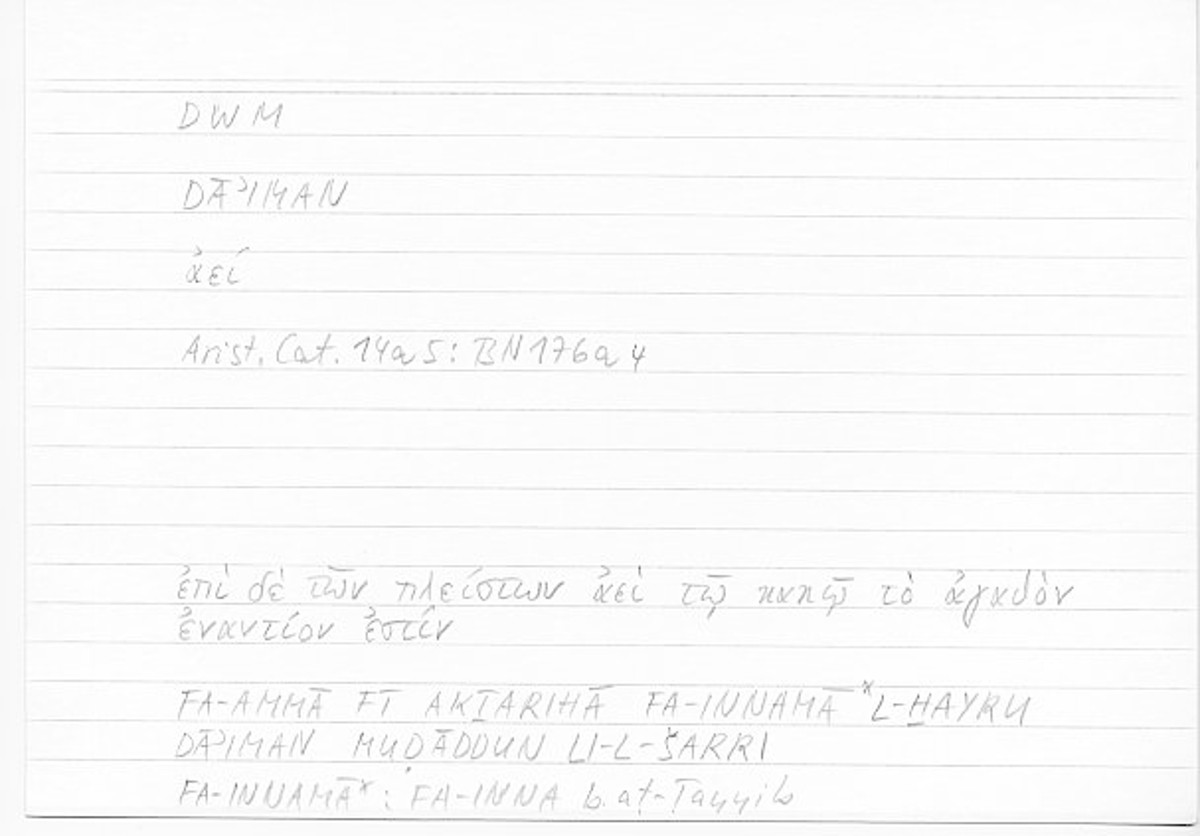 DWM
DĀʾIMAN
ἀεί
Arist. Cat. 14a5: BN176a4
ἐπὶ δὲ τῶν πλείστων ἀεὶ τῷ κακῷ τὸ ἀγαθὸν
ἐναντίον ἐστίν
FA-AMMĀ FĪ AKṮARIHĀ FA-INNAMĀ *L-ḪAYRU
DĀʾIMAN MUḌĀDDUN LI-L-ŠARRI
FA-INNAMĀ* : FA-INNA b. aṭ-Ṭayyib